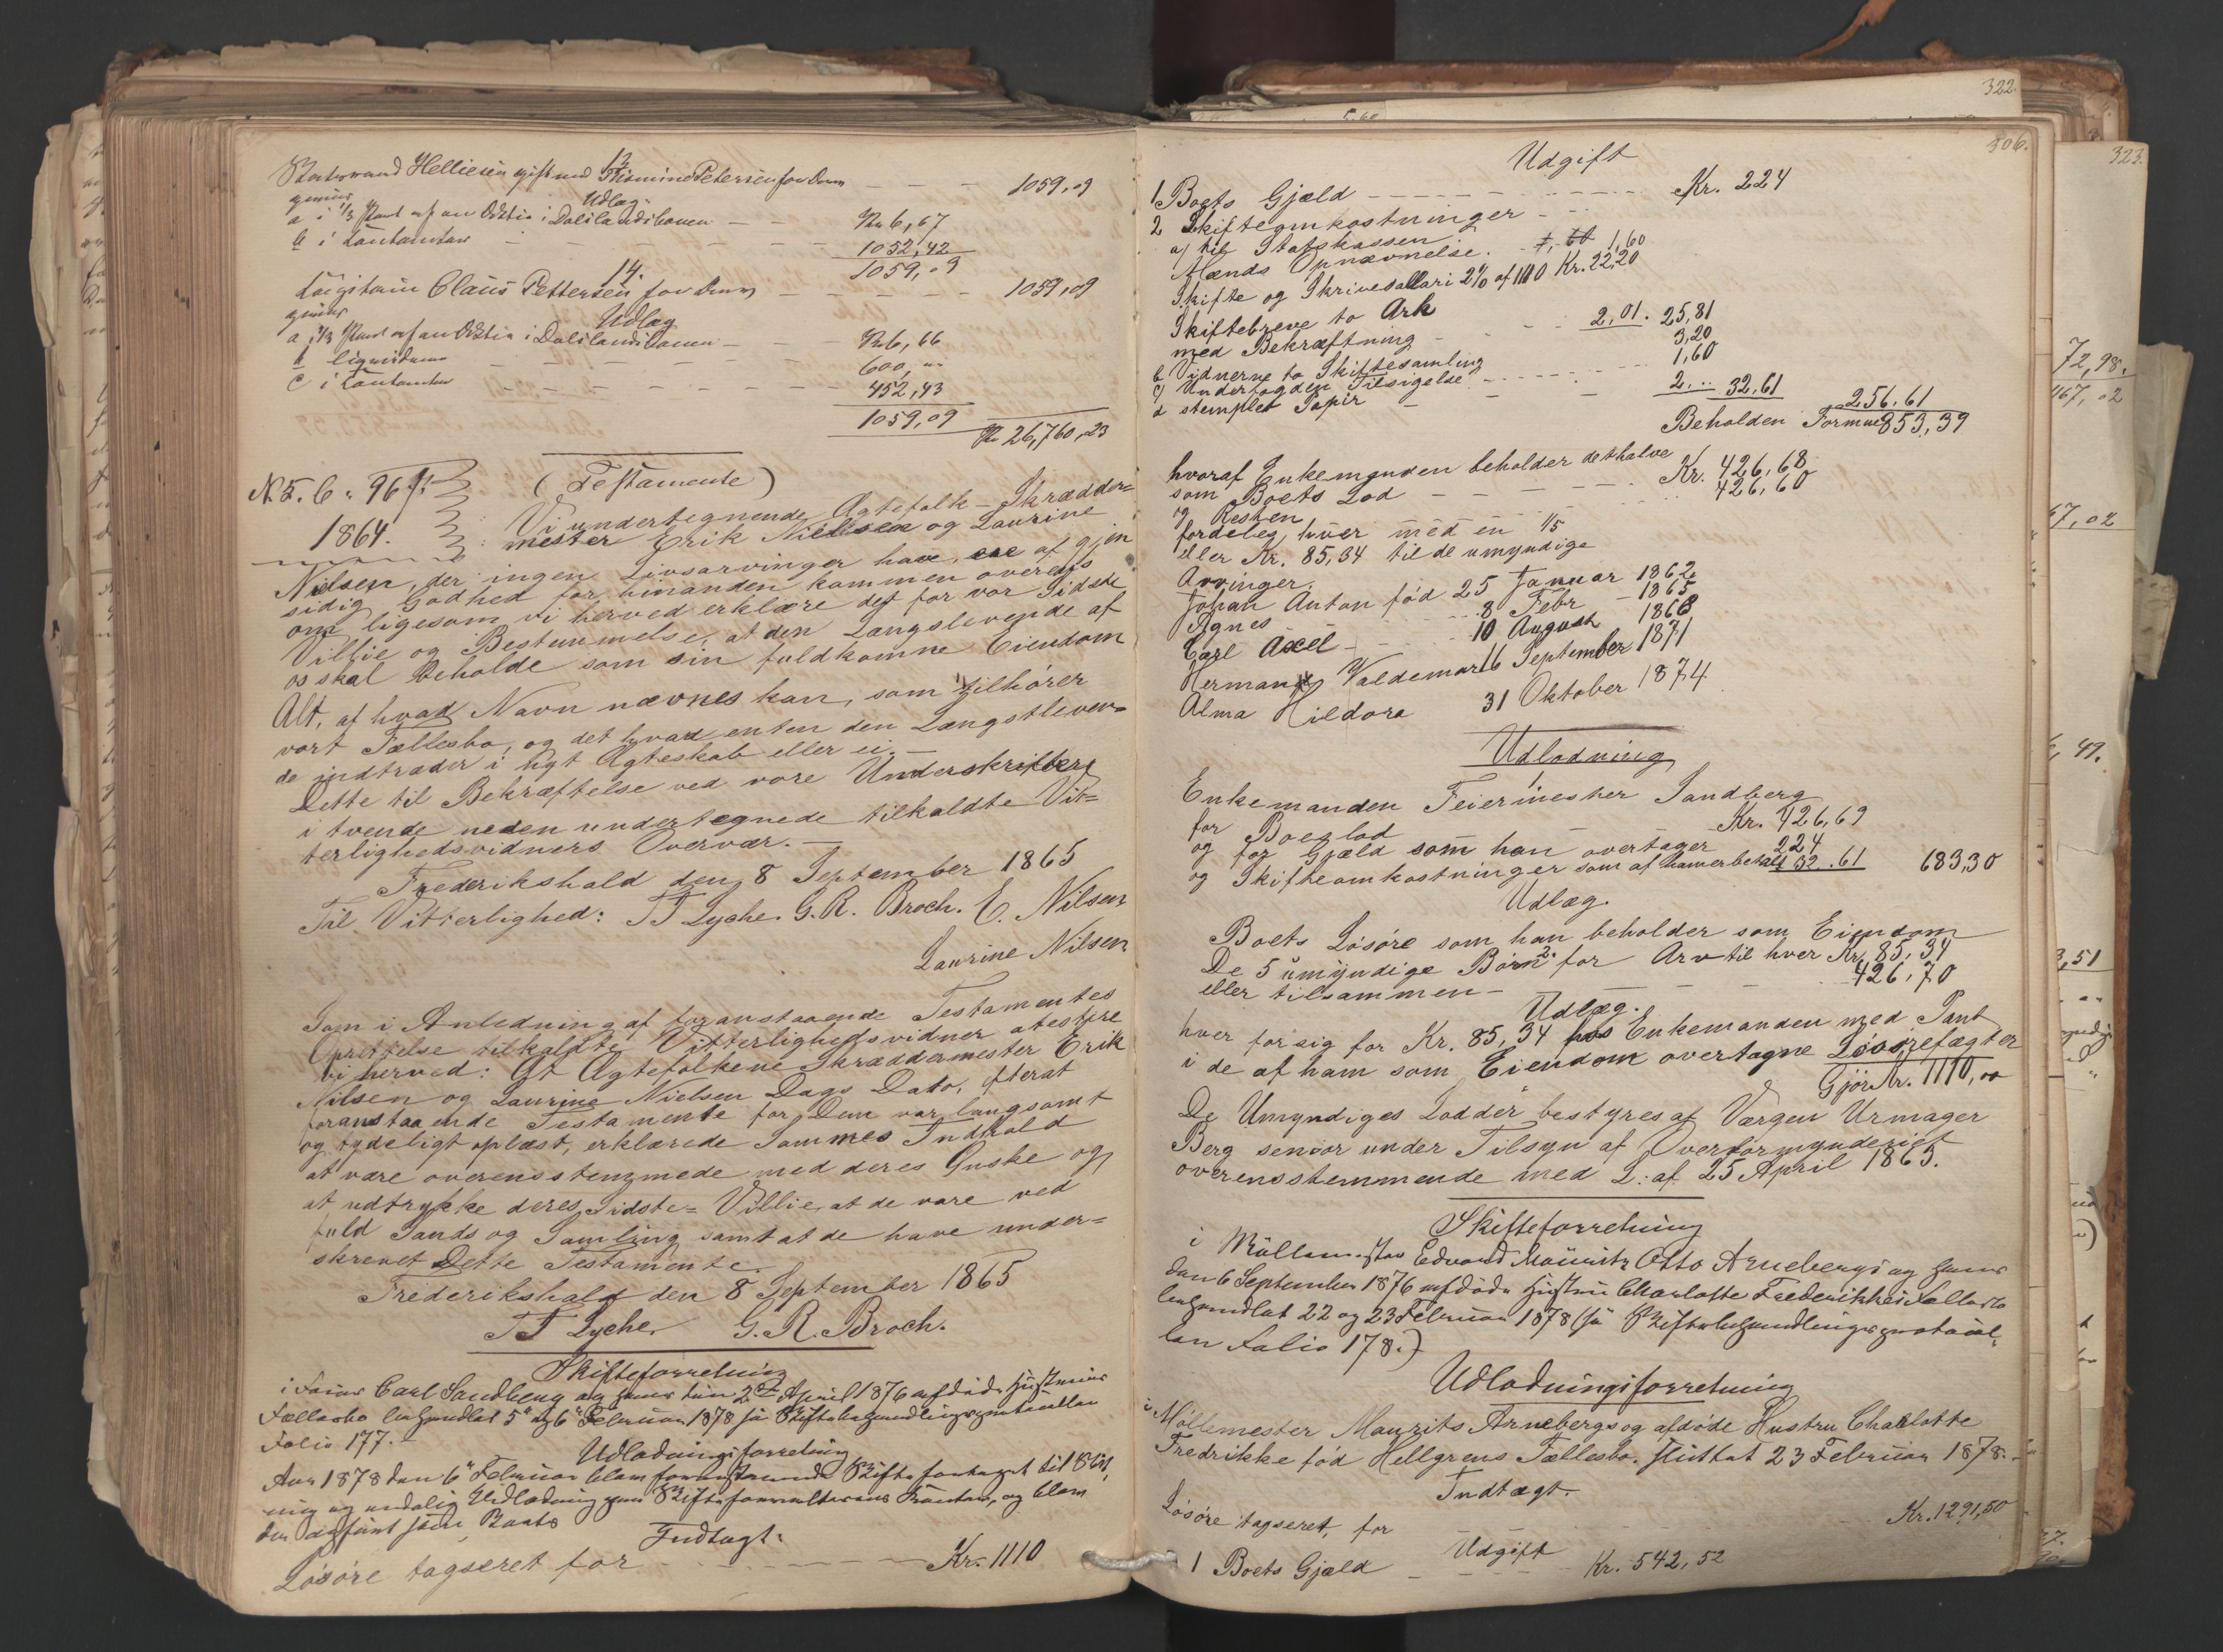 13.
Helliesen gift med Thomine Petersen for Deres 1059,09
Udlæg.
a i 1/3 Part af en Aktie i Dalslandsbanen Kr 6,67
b i Contanter 1052,42
1059,09
14.
Claus Pettersen for Deres 1059,09
Udlæg
a i 1/3 Part af en Aktie i Dalslandsbanen Kr 6,66
b 600,"
c i Contanter 452,43
1059,09 Kr 26,760,23
(Testamente)
1864.
Vi undertegnende Ægtefolk - Skrædder=
mester Erik Nielsen og Laurine
Nielsen, der ingen Livsarvinger have, ere af gjen
sidig Godhed for hinanden kommen overens
om, ligesom vi herved erklære det for vor Sidste
Villie og Bestemmelse, at den Længstlevende af
os skal beholde som sin fuldkomne Eiendom
Alt, af hvad Navn nævnes kan, som tilhører
vort Fællesbo, og det hvad enten den Længstleven=
de indtræder i nyt Ægteskab eller ei.-
Dette til Bekræftelse ved vore Underskrifter
i tvende neden undertegnede tilkaldte Vit=
terlighedsvidners Overvær.-
Frederikshald den 8 September 1865
Til Vitterlighed: TT Lyche. G. R. Broch. E. Nilsen
Laurine Nilsen
Som i Anledning af foranstaaende Testamentes
Oprettelse tilkaldte Vitterlighedsvidner atestere
vi herved: At Ægtefolkene Skræddermester Erik
Nilsen og Laurine Nielsen Dags Dato, efterat
foranstaaende Testamente for Dem var langsomt
og tydeligt oplæst, erklærede Sammes Indhold
at være overensstemmede med deres Ønske og
at udtrykke deres Sidste= Villie, at de vare ved
fuld Sands og Samling samt at de have under=
skrevet Dette Testamente.
Frederikshald den 8 September 1865
TT Lyche. G. R. Broch.
Skifteforretning
i Feier Carl Sandberg og hans den 2den April 1876 afdøde Hustrues
Fællesbo behandlet 5te og 6te Februar 1878 se Skiftebehandlingsprotocollen
Folio 177.-
Udlodningsforretning
Aar 1878 den 6te Februar blev foranstaaende Skifte foretaget til Slut,
ning og endelig Udlodning paa Skifteforvalterens Contor, og blev
den afsluttet saa: Boets
Indtægt.
Løsøre tagseret for Kr. 1110
306.
Udgift
1 Boets Gjæld Kr. 224
2 Skifteomkostninger
a) til Statskassen
Mænds Opnævnelse. 1,60
Skifte og Skrivesallari 2% af 1110 Kr. 22,20
Skiftebreve to Ark
med Bekræftning 2,01. 25,81
b Vidnerne to Skiftesamling 3,20
c) Underfogden Tilsigelse 1,60
d stemplet Papir 2... 32,61 256,61
Beholden Formue 853,39
hvoraf Enkemanden beholder dethalve
som Boets Lod Kr. 426,68
og Resten 426,60
fordeles, hver med en 1/5
eller Kr. 85,34 til de umyndige
Arvinger.
Johan Anton fød 25 Januar 1862
Agnes 8 Febr - 1865
Carl Axel - 10 August 1868
Herman Valdemar 16 September 1871
Alma Hildora 31 Oktober 1874
Udlodning
1
Enkemanden Feiermester Sandberg
for Boeslod Kr. 426,69
og for Gjæld som han overtager 224
og Skifteomkostninger som af ham er betalt 32.61 683,30
Udlæg.
Boets Løsøre som han beholder som Eiendom
2.
De 5 umyndige Børn for Arv til hver Kr. 85,34
eller tilsammen- 426,70
Udlæg.
hver for sig for Kr. 85,34 hos Enkemanden med Pant
i de af ham som Eiendom overtagne Løsørefægter
Gjør Kr. 1110,00
De Umyndiges Lodder bestyres af Værgen Urmager
Berg senior under Tilsyn af Overformynderiet
overensstemmende med L. af 25 April 1863.
Skifteforretning
i Møllemester Edvard Mauritz Otto Arnebergs og hans
den 6 September 1876 afdøde Hustru Charlotte Frederikkes Fællesbo
behandlet 22 og 23 Februar 1878 (se Skiftebehandlingsprotocol,
len Folio 178.)
Udlodningsforretning
i Møllemester Maurits Arnebergs og afdøde Hustru Charlotte
Fredrikke fød Hellgrens Fællesbo. sluttet 23 Februar 1878.-
Indtægt.
Løsøre tagseret, for Kr. 1291,50
Udgift
1 Boets Gjæld Kr. 542,52
322.
323.
72,98.
467,02
67,02